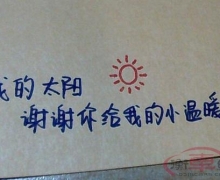 我的太阳
谢谢你给我的小温暖